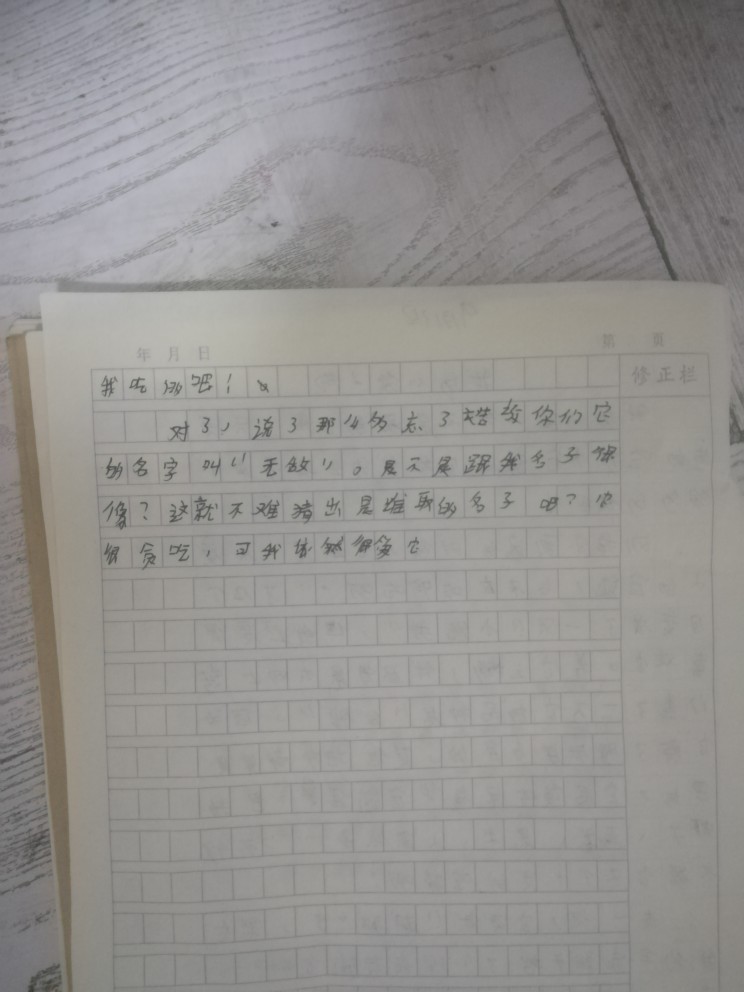 年 月 日
第 页
修正栏
我吃的吧！
对了，说了那么多忘了告诉你们它
的名字叫“无敌”。是不是跟我名子很
像？这就不难猜出是谁取的名子吧？它
很贪吃，可我依然很爱它